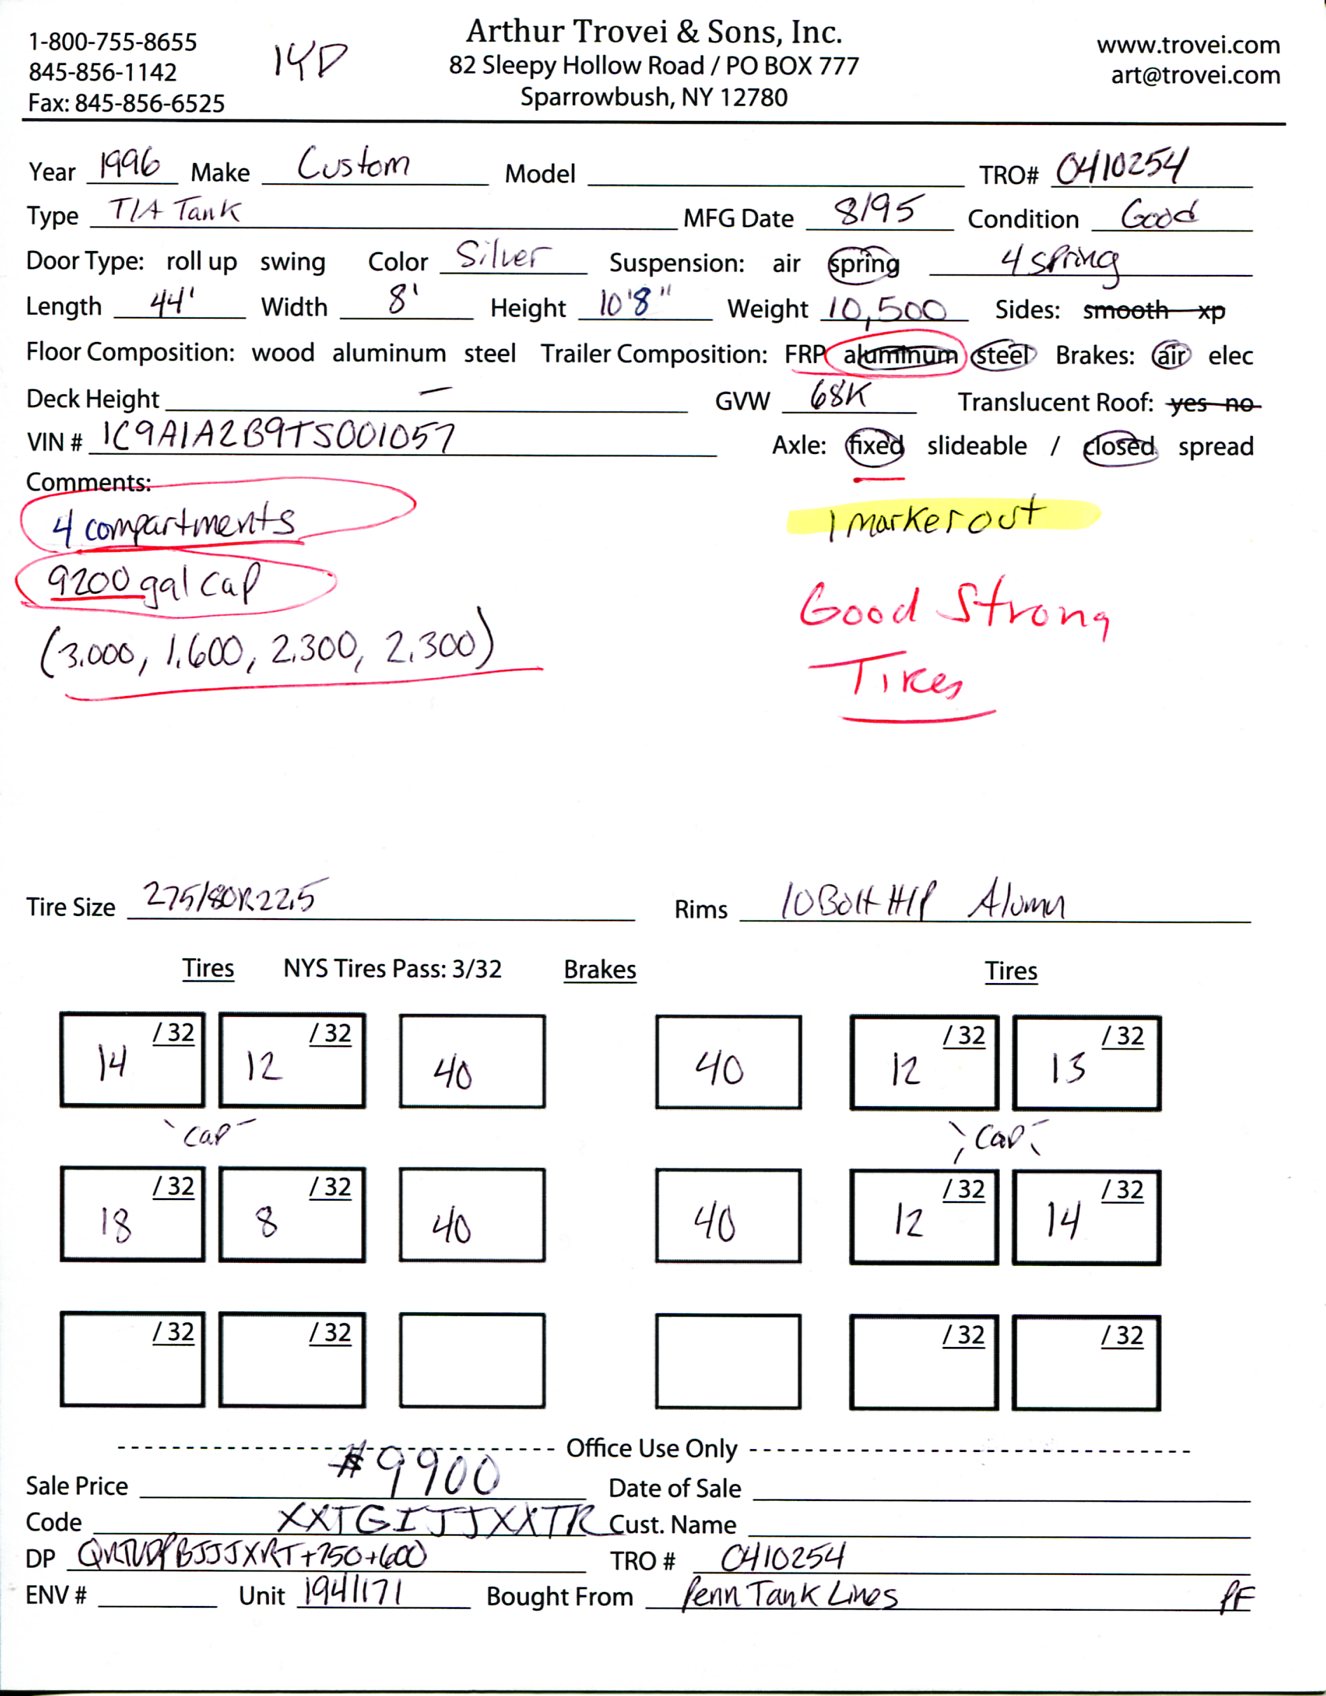 1-800-755-8655
845-856-1142
Fax: 845-856-6525
14D
Arthur Trovei & Sons, Inc.
82 Sleepy Hollow Road / PO BOX 777
Sparrowbush, NY 12780
www.trovei.com
art@trovei.com
Year 1996 Make Custom Model TRO# 0410254
Type T/A Tank MFG Date 8/95 Condition Good
Door Type: roll up swing Color Silver Suspension: air spring 4 spring
Length 44' Width 8' Height 10'8" Weight 10,500 Sides: smooth xp
Floor Composition: wood aluminum steel Trailer Composition: FRP aluminum steel Brakes: air elec
Deck Height — GVW 68K Translucent Roof: yes no
VIN # 1C9A1A2B9TS001057 Axle: fixed slideable / closed spread
Comments:
4 compartments
1 marker out
9200 gal cap
Good Strong
(3.000, 1.600, 2.300, 2.300)
Tires
Tire Size 275/80R22.5 Rims 10 Bolt H/P Alumn
Tires NYS Tires Pass: 3/32 Brakes Tires
14 /32 12 /32 40 40 12 /32 13 /32
cap cap
18 /32 8 /32 40 40 12 /32 14 /32
/32 /32 /32 /32
Office Use Only
Sale Price $9900 Date of Sale
Code XXTGIJJXXTR Cust. Name
DP +750+600 TRO # 0410254
ENV # Unit 1941171 Bought From Penn Tank Lines PE